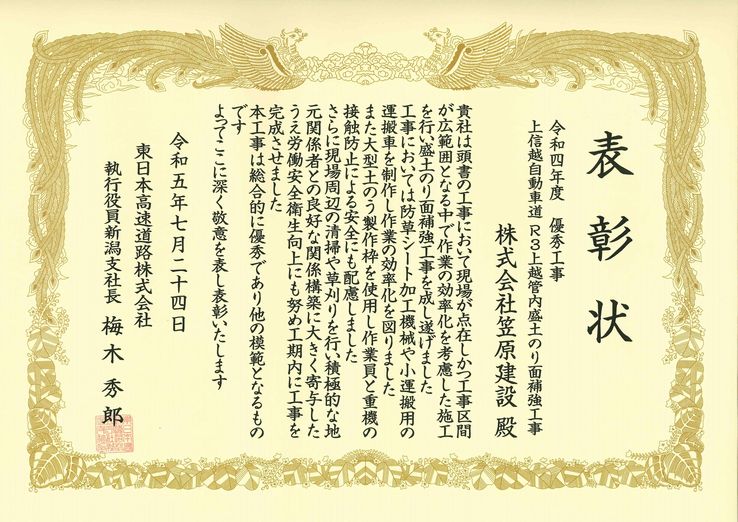 表彰状
令和四年度　優秀工事
上信越自動車道　R3上越管内盛土のり面補強工事
株式会社笠原建設　殿
貴社は頭書の工事において現場が点在しかつ工事区間
が広範囲となる中で作業の効率化を考慮した施工
を行い盛土のり面補強工事を成し遂げました
工事においては防草シート加工機械や小運搬用の
運搬車を制作し作業の効率化を図りました
また大型土のう製作枠を使用し作業員と重機の
接触防止による安全にも配慮しました
さらに現場周辺の清掃や草刈りを行い積極的な地
元関係者との良好な関係構築に大きく寄与した
うえ労働安全衛生向上にも努め工期内に工事を
完成させました
本工事は総合的に優秀であり他の模範となるもの
です
よってここに深く敬意を表し表彰いたします
令和五年七月二十四日
東日本高速道路株式会社
執行役員新潟支社長　梅木秀郎